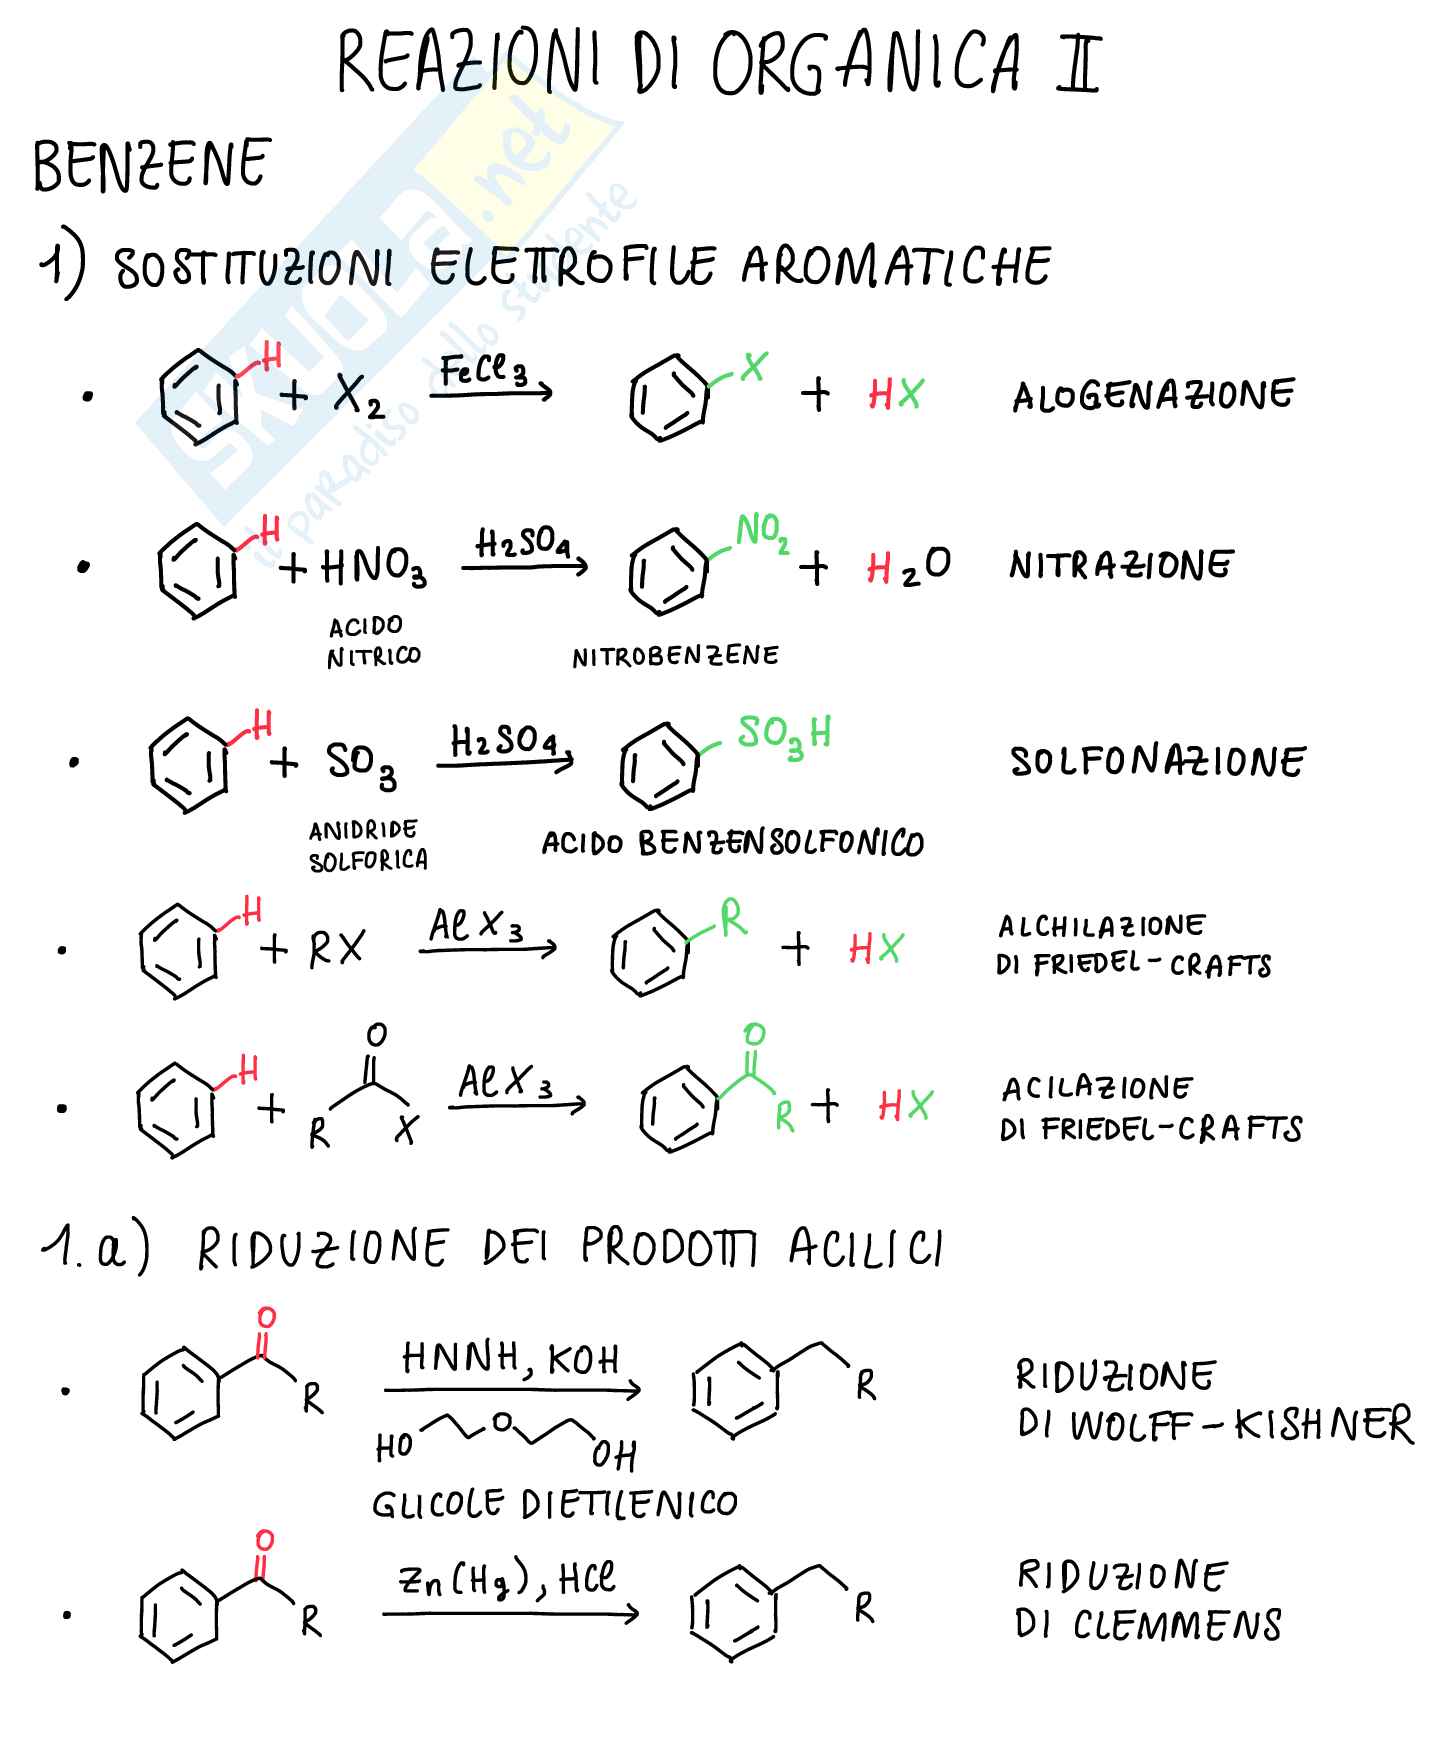 REAZIONI DI ORGANICA II
BENZENE
1) SOSTITUZIONI ELETTROFILE AROMATICHE
H + X2 FeCl3 X + HX ALOGENAZIONE
H + HNO3 H2SO4 NO2 + H2O NITRAZIONE
ACIDO
NITRICO NITROBENZENE
H + SO3 H2SO4 SO3H SOLFONAZIONE
ANIDRIDE
SOLFORICA ACIDO BENZENSOLFONICO
H + RX AlX3 R + HX ALCHILAZIONE
DI FRIEDEL-CRAFTS
H + R O X AlX3 O R + HX ACILAZIONE
DI FRIEDEL-CRAFTS
1.a) RIDUZIONE DEI PRODOTTI ACILICI
O R HNNH, KOH R RIDUZIONE
HO O OH DI WOLFF-KISHNER
GLICOLE DIETILENICO
O R Zn(Hg), HCl R RIDUZIONE
DI CLEMMENS
SKUOLA.net
il paradiso dello studente